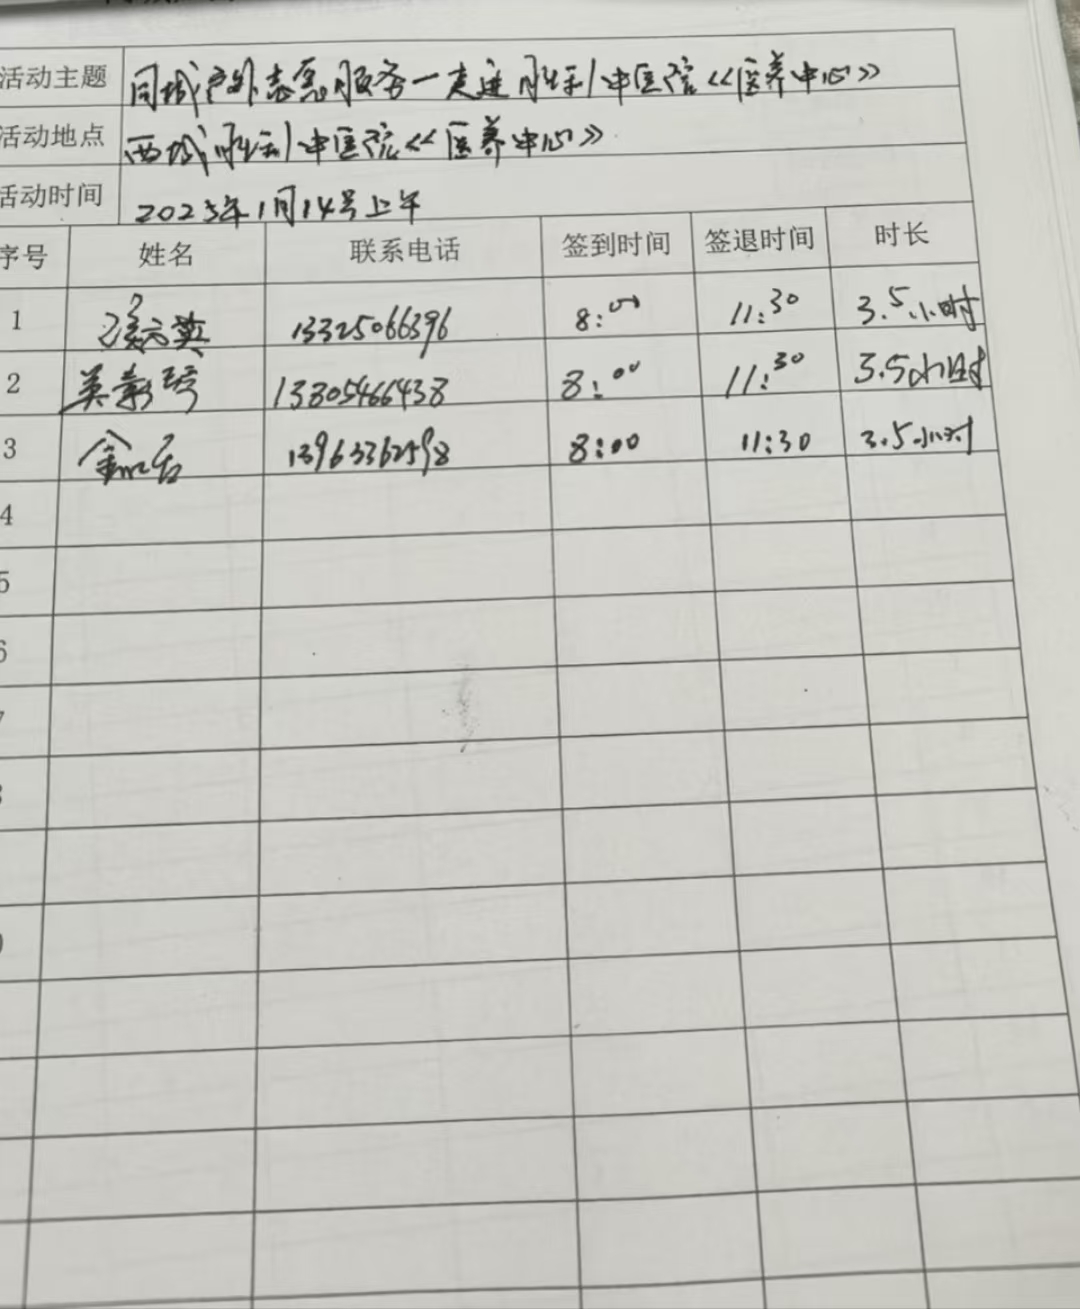 活动主题 同城户外志愿服务一走进胜利中医院《医养中心》
活动地点 西城胜利中医院《医养中心》
活动时间 2025年1月14号上午
序号 姓名 联系电话 签到时间 签退时间 时长
1 13325066396 8:00 11:30 3.5小时
2 13805466438 8:00 11:30 3.5小时
3 13963362598 8:00 11:30 3.5小时
4
5
6
7